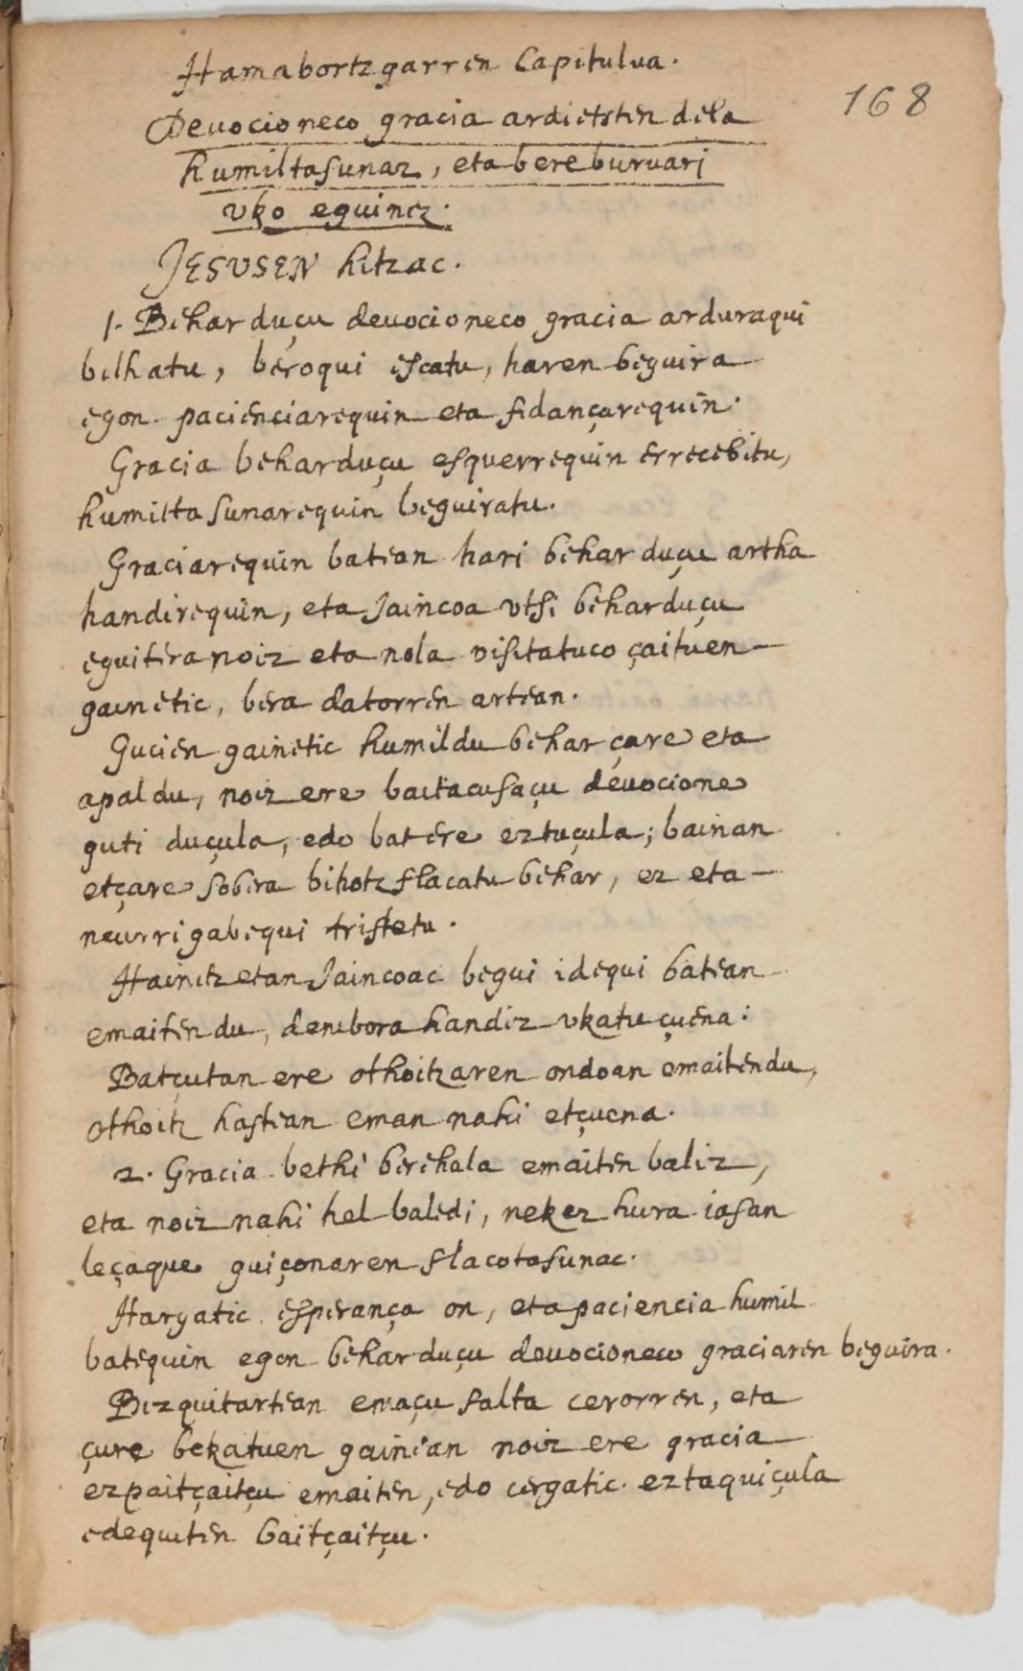 Hamabortzgarren Capitulua.
168
Deuocioneco gracia ardietsten dela
humiltaſunaz, eta bere buruari
vko eguinez.
JESVSEN hitzac.
1. Behar duçu deuocioneco gracia arduraqui
bilhatu, beroqui eſcatu, haren beguira
egon pacienciarequin eta fidançarequin.
Gracia behar duçu eſquerrequin errecebitu,
humiltaſunarequin beguiratu.
Graciarequin batean hari behar duçu artha
handirequin, eta Jaincoa vtſi behar duçu
eguitera noiz eta nola viſitatuco çaituen
gainetic, bera datorren artean.
Gucien gainetic humildu behar çare eta
apaldu, noiz ere baitacuſaçu deuocione
guti duçula, edo batere eztuçula; bainan
etçare ſobera bihotz flacatu behar, ez eta
neurri gabequi triſtetu.
Hainitzetan Jaincoac begui idequi batean
emaiten du, denbora handiz vkatu çuena:
Batçutan ere othoitzaren ondoan emaiten du,
othoitz haſtean eman nahi etçuena.
2. Gracia bethi berehala emaiten baliz,
eta noiz nahi hel baledi, nekez hura iaſan
leçaque guiçonaren flacotaſunac.
Hargatic eſperança on, eta paciencia humil
batequin egon behar duçu deuocioneco graciaren beguira.
Bizquitartean emaçu falta cerorren, eta
çure bekatuen gainean noiz ere gracia
ezpaitçaitçu emaiten, edo cergatic eztaquiçula
edequiten baitçaitçu.